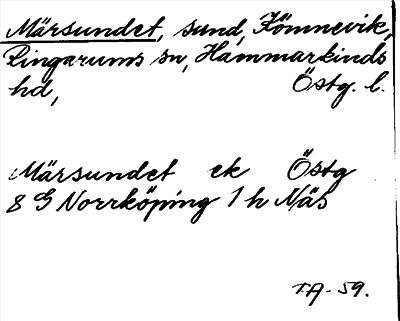 Märsundet, sund, Kömnevik,
Ringarums sn, Hammarkinds
hd, Östg. l.
Märsundet ek Östg
8 G Norrköping 1 h N/äs
T.A. 59.